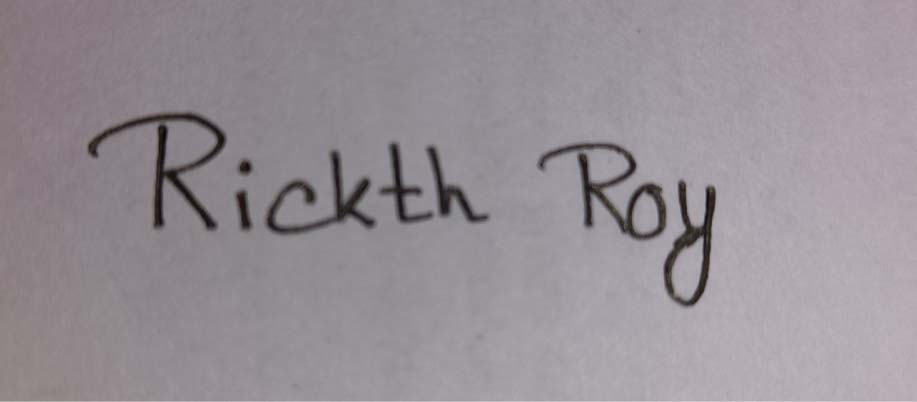 Rickth Roy